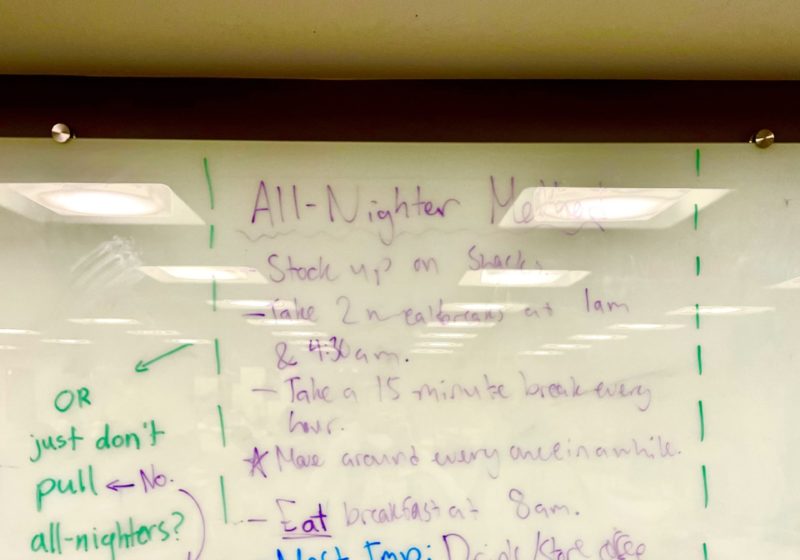 All-Nighter Methods
- Stock up on Snacks
- Take 2 mealbreaks at 1am
& 4:30am.
- Take a 15 minute break every
hour.
☆ Move around every once in awhile.
- Eat breakfast at 8am.
Most Imp: Drink
OR
just don't
pull ← No.
all-nighters?